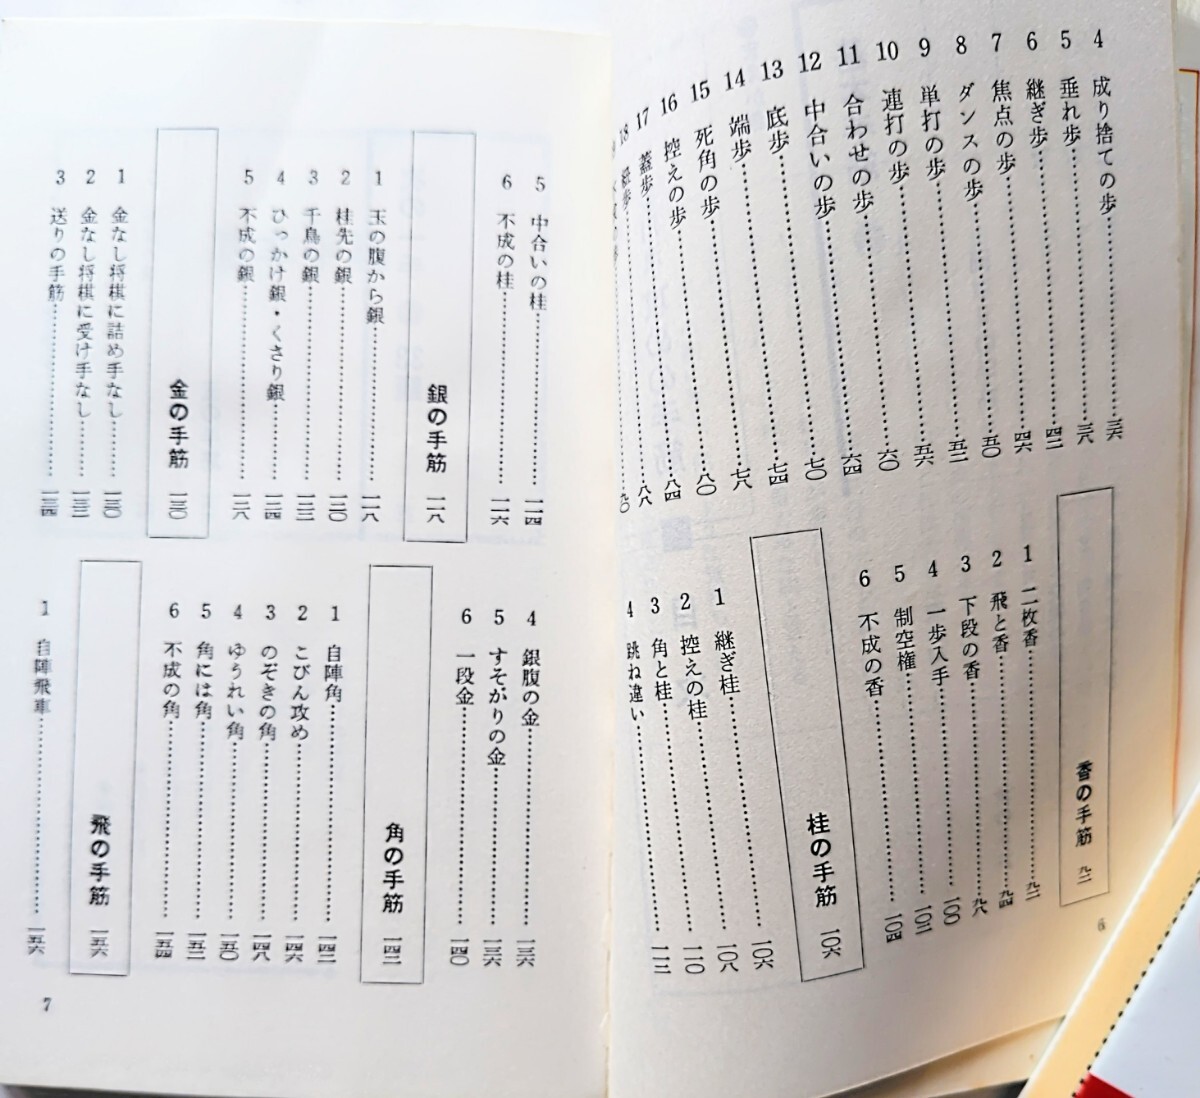 4 成り捨ての歩……三六
5 垂れ歩……三八
6 継ぎ歩……四二
7 焦点の歩……四六
8 ダンスの歩……五〇
9 単打の歩……五二
10 連打の歩……五六
11 合わせの歩……六〇
12 中合いの歩……六四
13 底歩……七〇
14 端歩……七四
15 死角の歩……七八
16 控えの歩……八〇
17 蓋歩……八四
18 ……八八
九〇
香の手筋 九二
1 二枚香……九二
2 飛と香……九四
3 下段の香……九八
4 一歩入手……一〇〇
5 制空権……一〇二
6 不成の香……一〇四
桂の手筋 一〇六
1 継ぎ桂……一〇六
2 控えの桂……一〇八
3 角と桂……一一〇
4 跳ね違い……一一二
6
5 中合いの桂……一一四
6 不成の桂……一一六
銀の手筋 一一八
1 玉の腹から銀……一一八
2 桂先の銀……一二〇
3 千鳥の銀……一二二
4 ひっかけ銀・くさり銀……一二四
5 不成の銀……一二八
金の手筋 一三〇
1 金なし将棋に詰め手なし……一三〇
2 金なし将棋に受け手なし……一三二
3 送りの手筋……一三四
4 銀腹の金……一三六
5 すそがりの金……一三六
6 一段金……一四〇
角の手筋 一四二
1 自陣角……一四二
2 こびん攻め……一四六
3 のぞきの角……一四八
4 ゆうれい角……一五〇
5 角には角……一五二
6 不成の角……一五四
飛の手筋 一五六
1 自陣飛車……一五六
7